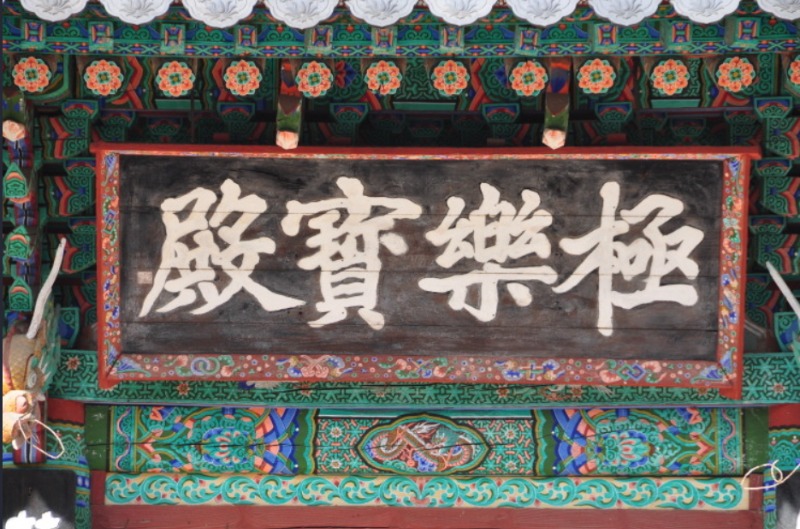 極樂寶殿